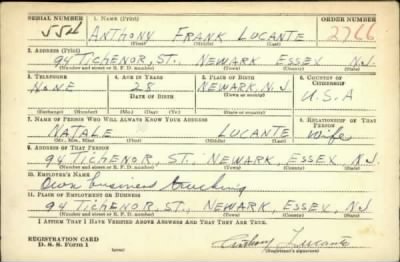 SERIAL NUMBER 1. NAME (Print) ORDER NUMBER
554 ANTHONY FRANK LUCANTE 2766
(First) (Middle) (Last)
2. ADDRESS (Print)
94 TICHENOR, ST., NEWARK ESSEX N.J.
(Number and street or R. F. D. number) (Town) (County) (State)
3. TELEPHONE 4. AGE IN YEARS 5. PLACE OF BIRTH 6. COUNTRY OF CITIZENSHIP
NONE 28 NEWARK, N.J.
DATE OF BIRTH (Town or county)
U.S.A
(Exchange) (Number) (Mo.) (Day) (Yr.) (State or country)
7. NAME OF PERSON WHO WILL ALWAYS KNOW YOUR ADDRESS 8. RELATIONSHIP OF THAT PERSON
NATALE LUCANTE Wife
(Mr., Mrs., Miss) (First) (Middle) (Last)
9. ADDRESS OF THAT PERSON
94 TICHENOR, ST., NEWARK, ESSEX N.J.
(Number and street or R. F. D. number) (Town) (County) (State)
10. EMPLOYER'S NAME
Own business trucking
11. PLACE OF EMPLOYMENT OR BUSINESS
94 TICHENOR, ST., NEWARK, ESSEX, N.J.
(Number and street or R. F. D. number) (Town) (County) (State)
I AFFIRM THAT I HAVE VERIFIED ABOVE ANSWERS AND THAT THEY ARE TRUE.
REGISTRATION CARD
D. S. S. Form 1 (over) Anthony Lucante
(Registrant's signature)